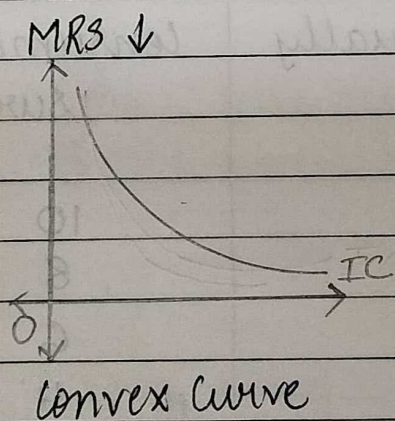 MRS ↓
IC
O
Convex Curve